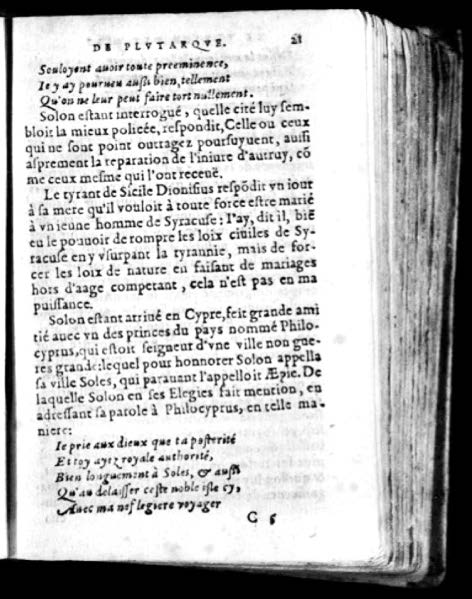 DE PLVTARQVE. 21
Souloyent auoir toute preeminence,
Ie y ay pourueu aussi bien, tellement
Qu'on ne leur peut faire tort nullement.
Solon estant interrogué, quelle cité luy sem-
bloit la mieux policée, respondit, Celle ou ceux
qui ne sont point outragez poursuyuent, aussi
asprement la reparation de l'iniure d'autruy, cō
me ceux mesme qui l'ont receuë.
Le tyrant de Sicile Dionisius respōdit vn iour
à sa mere qu'il vouloit à toute force estre marié
à vn ieune homme de Syracuse: I'ay, dit il, biē
eu le pouuoir de rompre les loix ciuiles de Sy-
racuse en y vsurpant la tyrannie, mais de for-
cer les loix de nature en faisant de mariages
hors d'aage competant, cela n'est pas en ma
puissance.
Solon estant arriué en Cypre, feit grande ami
tié auec vn des princes du pays nommé Philo-
cyprus, qui estoit seigneur d'vne ville non gue-
res grande: lequel pour honnorer Solon appella
sa ville Soles, qui parauant l'appelloit Æpie. De
laquelle Solon en ses Elegies fait mention, en
adressant sa parole à Philocyprus, en telle ma-
niere:
Ie prie aux dieux que ta posterité
Et toy ayez royale authorité,
Bien longuement à Soles, & aussi
Qu'au delaisser ceste noble isle cy,
Auec ma nef legiere voyager
C 5